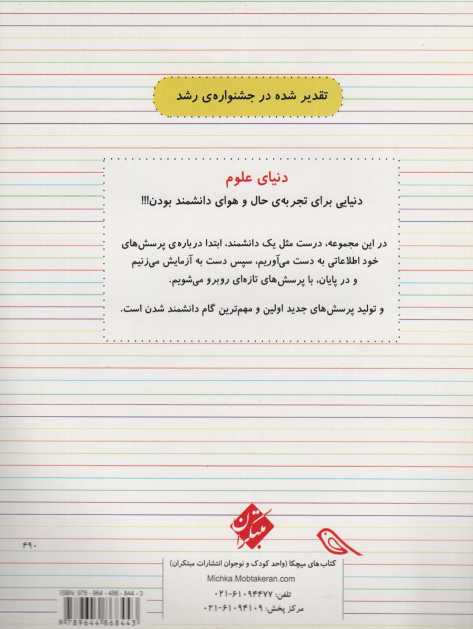 تقدیر شده در جشنواره‌ی رشد
دنیای علوم
دنیایی برای تجربه‌ی حال و هوای دانشمند بودن!!!
در این مجموعه، درست مثل یک دانشمند، ابتدا درباره‌ی پرسش‌های
خود اطلاعاتی به دست می‌آوریم، سپس دست به آزمایش می‌زنیم
و در پایان، با پرسش‌های تازه‌ای روبرو می‌شویم.
و تولید پرسش‌های جدید اولین و مهم‌ترین گام دانشمند شدن است.
مبتکران
۴۹۰
کتاب های میچکا (واحد کودک و نوجوان انتشارات مبتکران)
Michka.Mobtakeran.com
تلفن: ۶۱۰۹۴۴۷۷-۰۲۱
مرکز پخش: ۶۱۰۹۴۱۰۹-۰۲۱
ISBN: 978-964-486-844-3
9789644868443